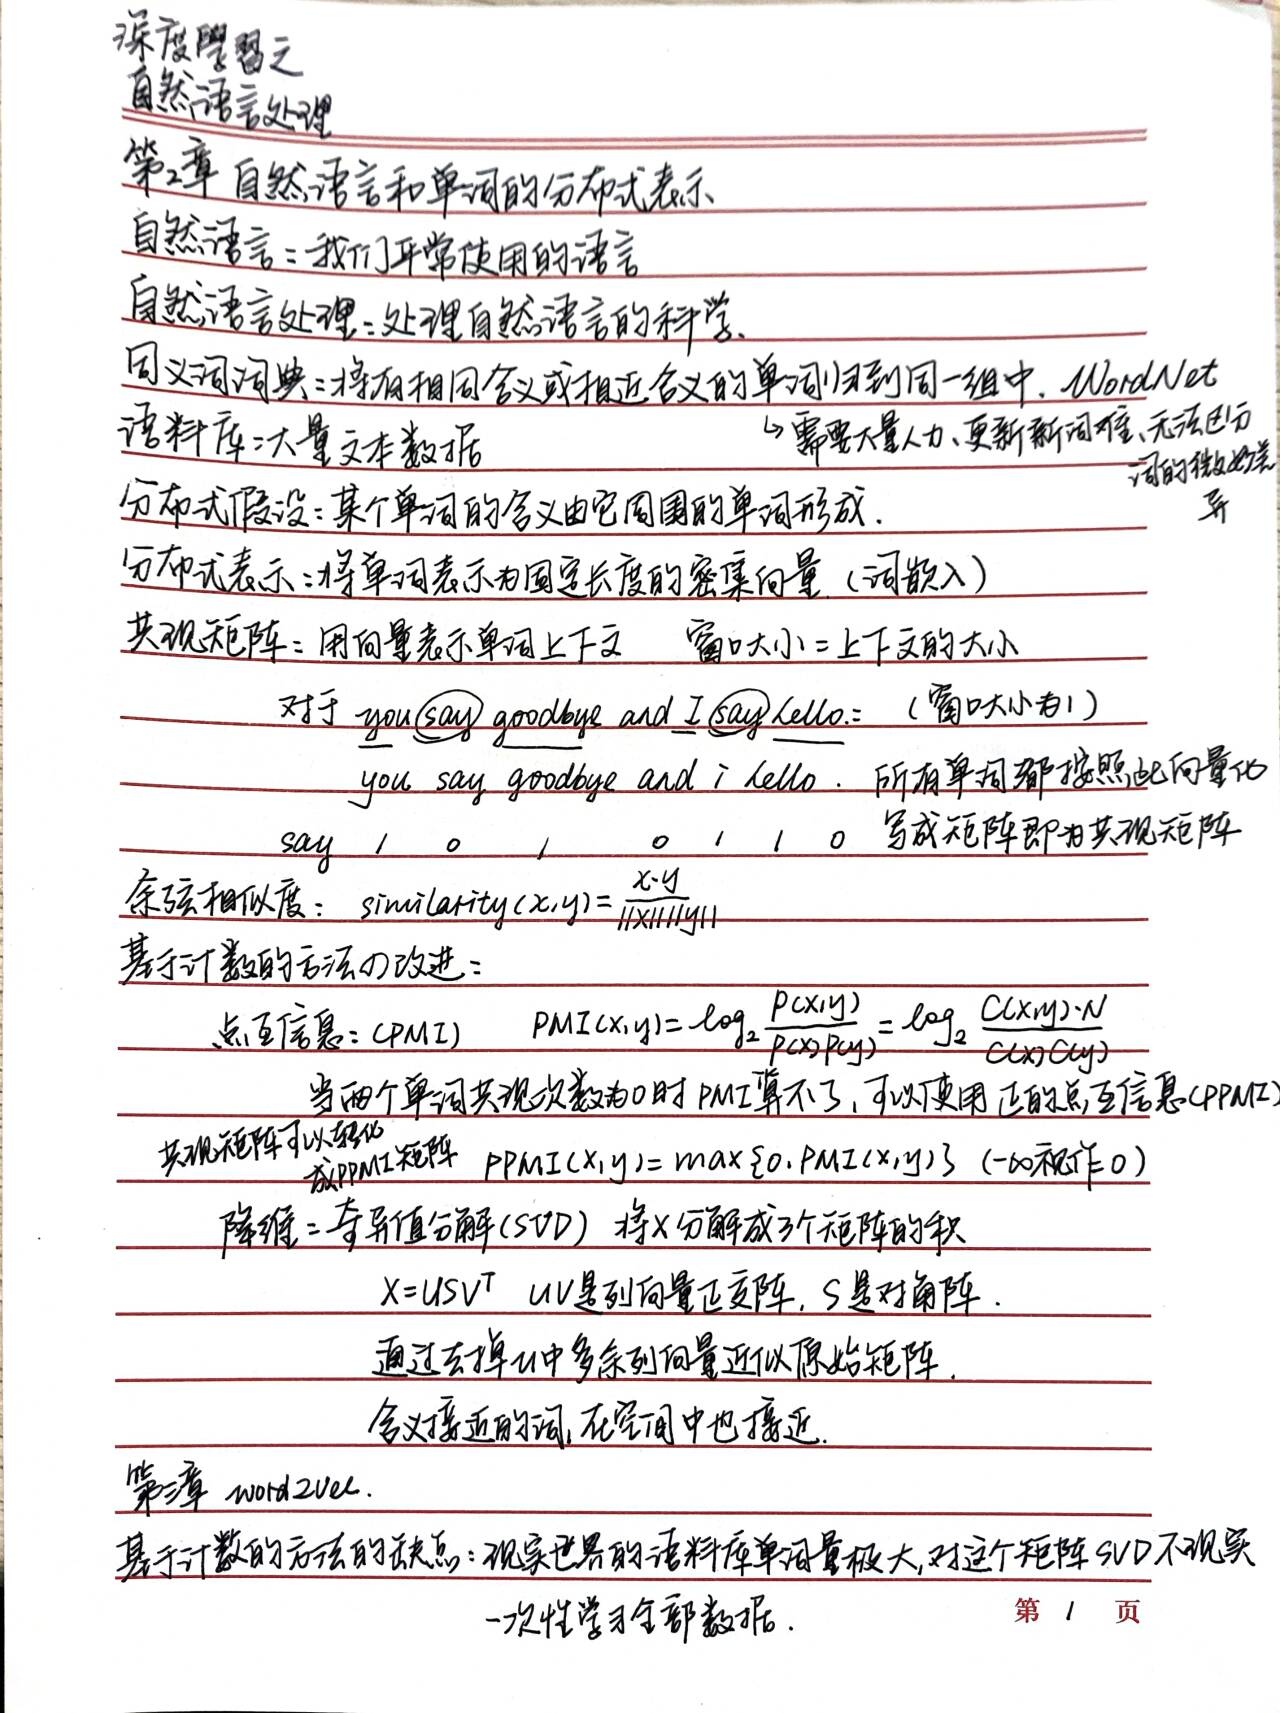 深度學習之
自然语言处理
第2章 自然语言和单词的分布式表示
自然语言：我们平常使用的语言
自然语言处理：处理自然语言的科学.
同义词词典：将有相同含义或相近含义的单词归到同一组中. WordNet
↳需要大量人力、更新新词难、无法区分
词的微妙差
异
语料库：大量文本数据
分布式假设：某个单词的含义由它周围的单词形成.
分布式表示：将单词表示为固定长度的密集向量.(词嵌入)
共现矩阵：用向量表示单词上下文 窗口大小=上下文的大小
对于 you say goodbye and I say hello.: (窗口大小为1)
you say goodbye and i hello . 所有单词都按照此向量化
say 1 0 1 0 1 1 0 写成矩阵即为共现矩阵
余弦相似度: similarity(x,y)=x·y/||x||||y||
基于计数的方法の改进:
点互信息:(PMI) PMI(x,y)=log₂ P(x,y)/P(x)P(y)=log₂ C(x,y)·N/C(x)C(y)
当两个单词共现次数为0时PMI算不了,可以使用正的点互信息(PPMI)
共现矩阵可以转化
成PPMI矩阵 PPMI(x,y)=max{0,PMI(x,y)} (-∞视作0)
降维:奇异值分解(SVD) 将X分解成3个矩阵的积
X=USVᵀ UV是列向量正交阵, S是对角阵.
通过去掉U中多余列向量近似原始矩阵.
含义接近的词,在空间中也接近.
第三章 word2vec.
基于计数的方法的缺点:现实世界的语料库单词量极大,对这个矩阵SVD不现实
一次性学习全部数据.
第 1 页